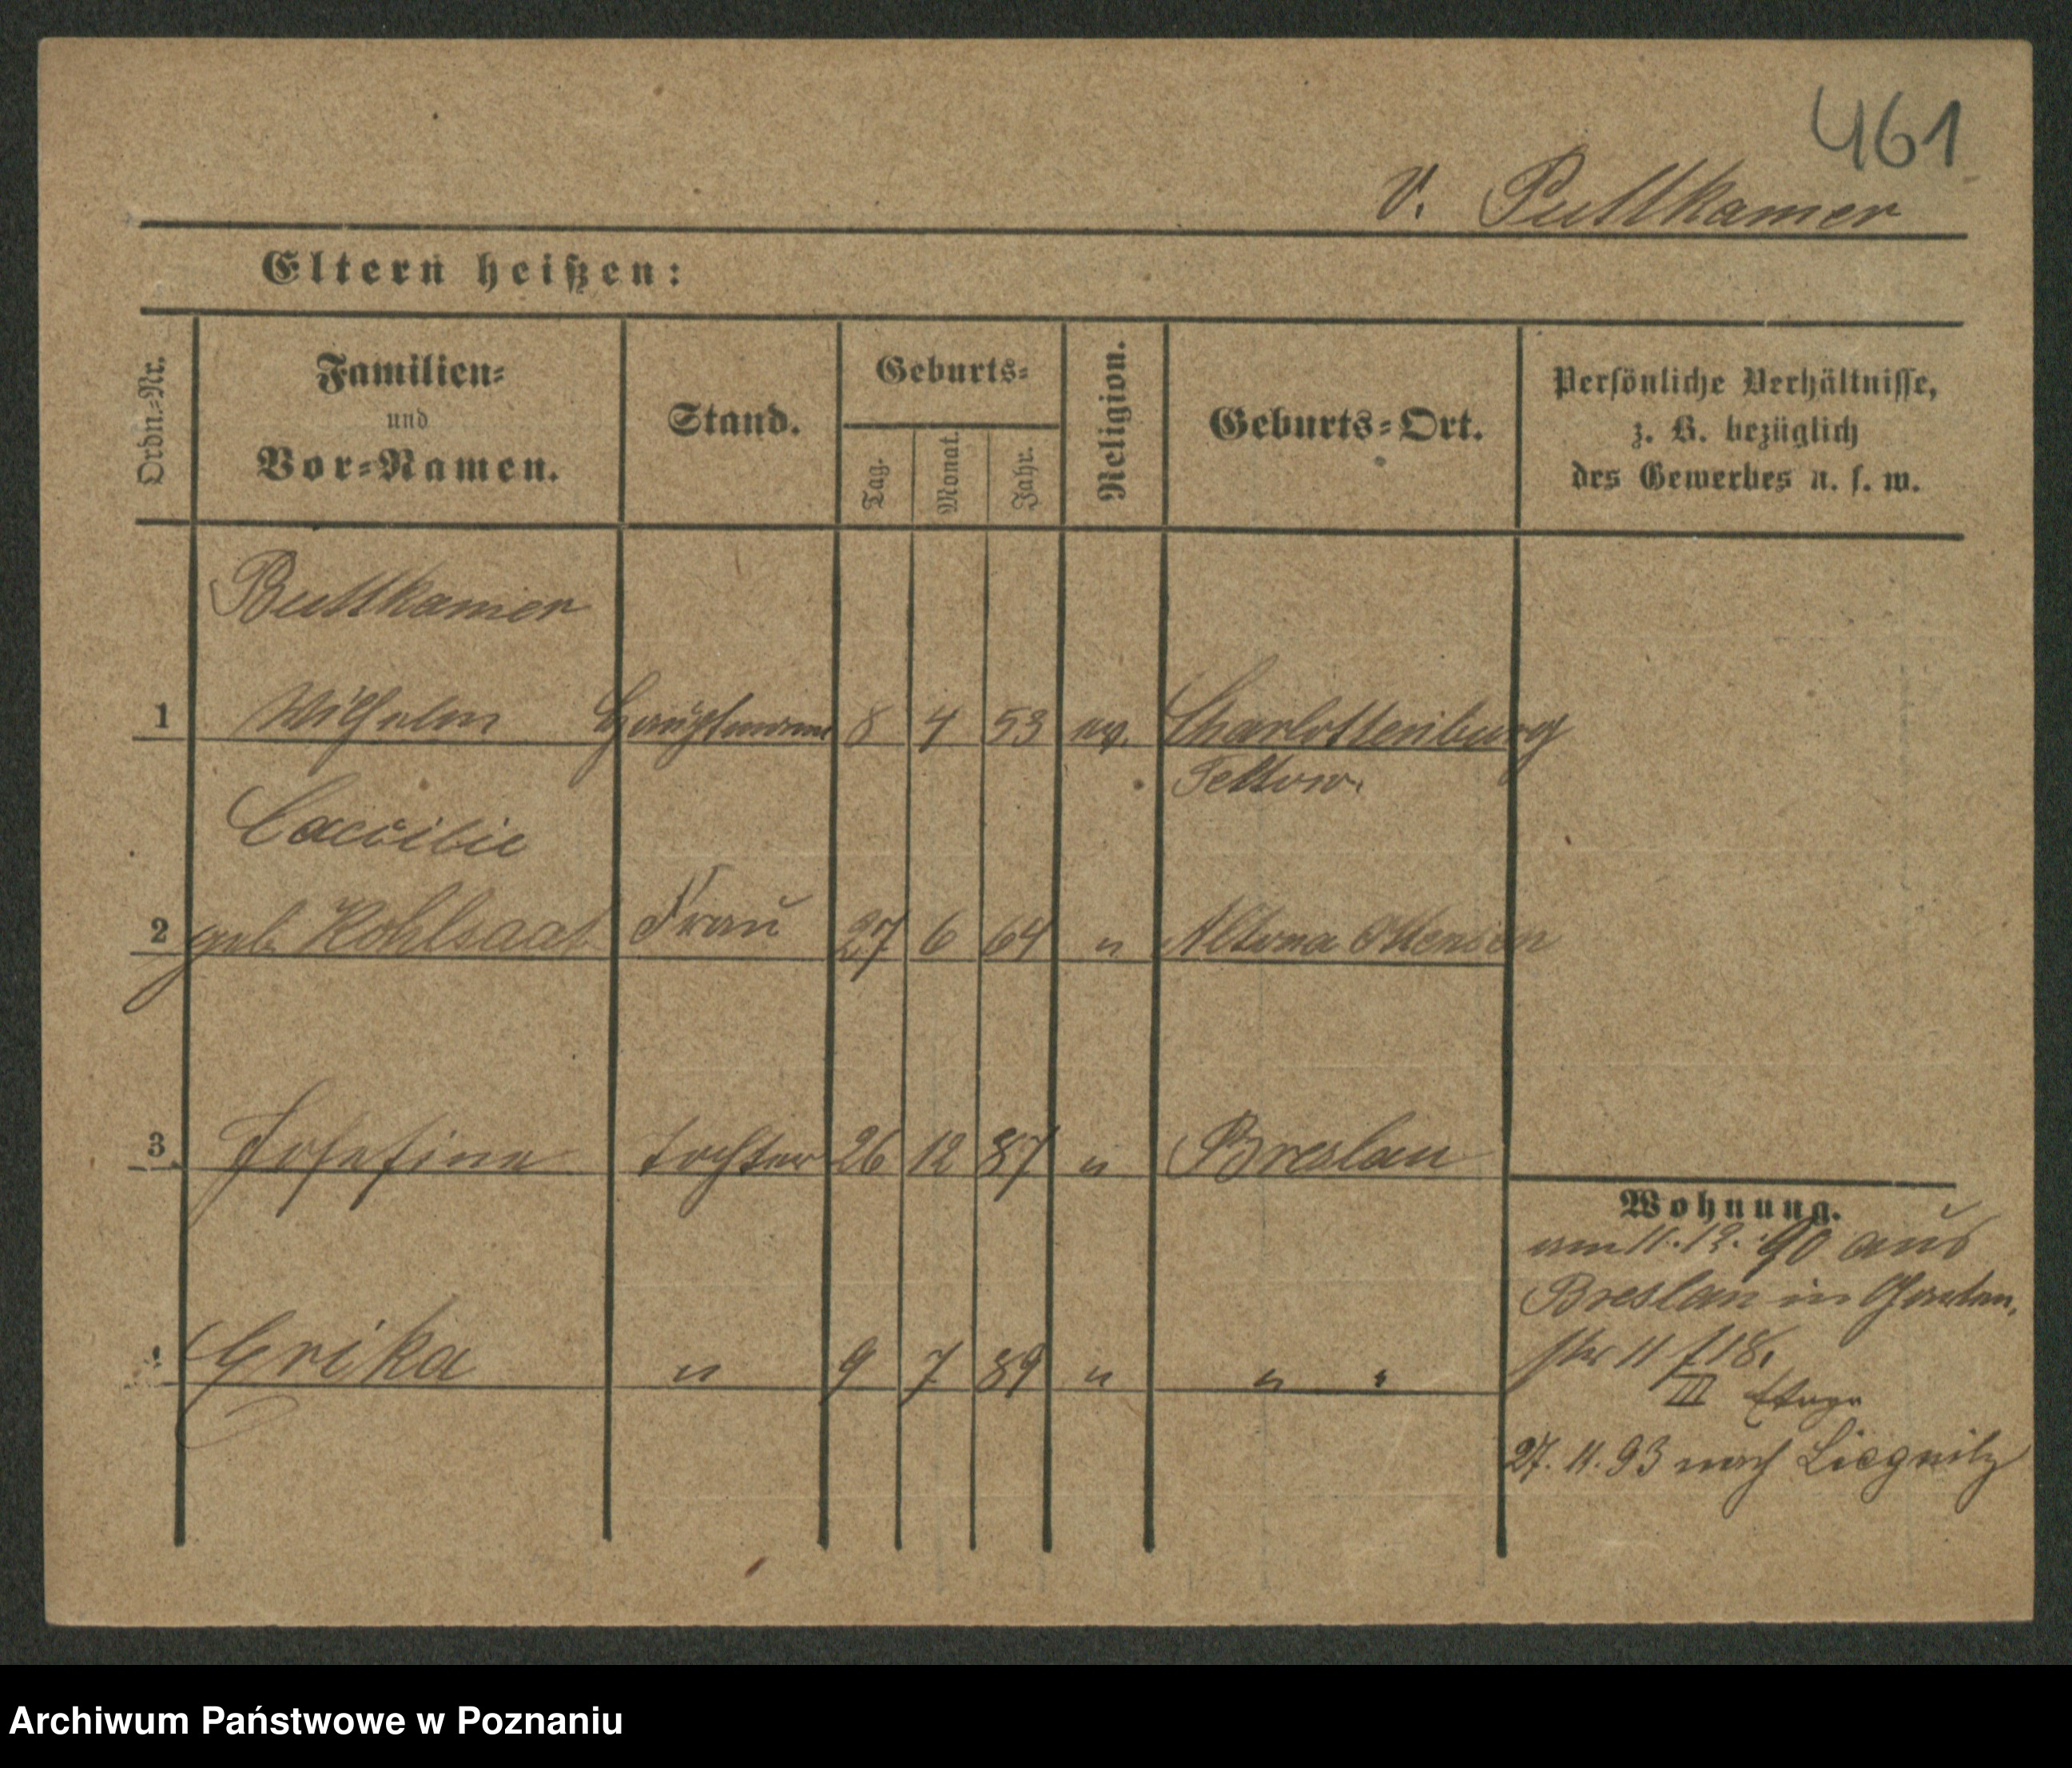 461
v. Puttkamer
Eltern heißen:
Ordn.-Nr.
Familien-
und
Vor-Namen.
Stand.
Geburts-
Tag.
Monat.
Jahr.
Religion.
Geburts-Ort.
Persönliche Verhältnisse,
z. B. bezüglich
des Gewerbes u. s. w.
Puttkamer
1 Wilhelm Hauptmann 8 4 53 ev. Charlottenburg
Teltow.
Caecilie
2 geb. Kohlsaat Frau 27 6 64 " Altona Ottensen
3 Josefine Tochter 26 12 87 " Breslau
Erika " 9 7 89 " " "
Wohnung.
am 11.12.90 aus
Breslau in Garten-
str 11 f 18.
III Etage
27.11.93 nach Liegnitz
Archiwum Państwowe w Poznaniu